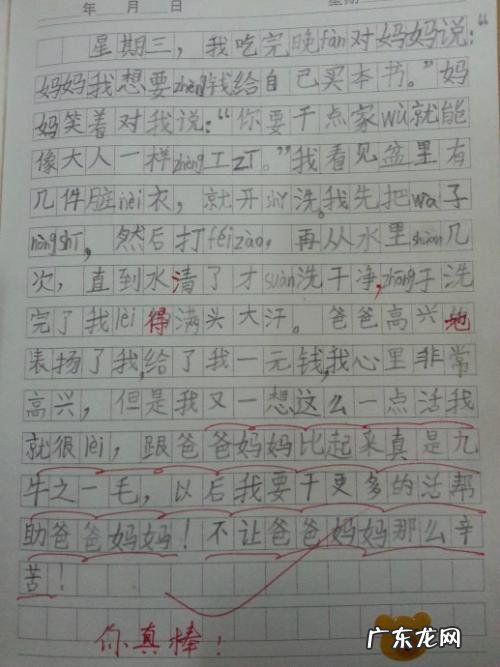 年 月 日 星期
星期三，我吃完晚fàn对妈妈说：“
妈妈我想要zhèng钱给自己买本书。”妈
妈笑着对我说：“你要干点家wù就能
像大人一样zhèng工zī。”我看见盆里有
几件脏nèi衣，就开shǐ洗。我先把wà子
nòngshī，然后打féizào，再从水里shuàn几
次，直到水清了才suàn洗干净，zhōng于洗
完了我lèi得满头大汗。爸爸高兴地
表扬了我，给了我一元钱，我心里非常
高兴，但是我又一想这么一点活我
就很lèi，跟爸爸妈妈比起来真是九
牛之一毛，以后我要干更多的活帮
助爸爸妈妈！不让爸爸妈妈那么辛
苦！
你真棒！
广东龙网